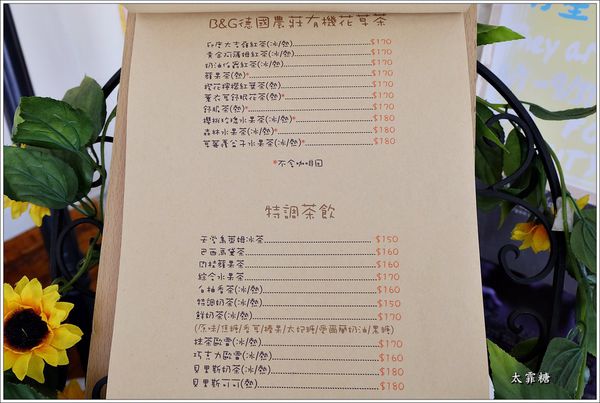 B&G德國農莊有機花草茶
印度大吉嶺紅茶(冰/熱) $170
黃金阿薩姆紅茶(冰/熱) $170
奶油伯爵紅茶(冰/熱) $170
蘋果茶(熱)* $170
橙花檸檬紅葉茶(熱) $170
薰衣草舒眠花茶(熱)* $170
舒眠茶(熱)* $170
櫻桃玫瑰水果茶(冰/熱)* $180
森林水果茶(冰/熱)* $180
可可薄公子水果茶(冰/熱) $180
*不含咖啡因
特調茶飲
天堂烏蘇姆冰茶 $150
巴西烏黛茶 $160
肉桂蘋果茶 $160
綜合水果茶 $170
白柚香茶(冰/熱) $160
特調奶茶(冰/熱) $150
鮮奶茶(冰/熱) $170
(原味/焦糖/香草/榛果/太妃糖/愛爾蘭奶油/黑糖)
抹茶歐蕾(冰/熱) $170
巧克力歐蕾(冰/熱) $160
貝里斯奶茶(冰/熱) $180
貝里斯可可(熱) $180
太霏糖